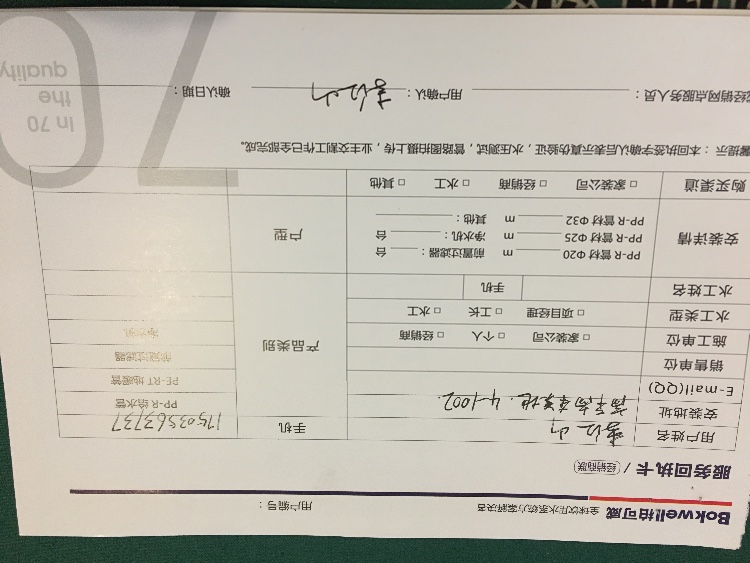 Bokwell柏可威 全球饮用水系统方案解决者 用户编号：
服务回执卡 / 经销商联
用户姓名 手机 17503563737
安装地址 4-1002
E-mail(QQ)
销售单位
施工单位 □ 家装公司 □ 个人 □ 经销商
水工类型 □ 项目经理 □ 工长 □ 水工
水工姓名 手机
产品类别
PP-R 给水管
PE-RT 地暖管
前置过滤器
净水机
安装详情
PP-R 管材 Φ20 m 前置过滤器： 台
PP-R 管材 Φ25 m 净水机： 台
PP-R 管材 Φ32 m 其他：
户型
购买渠道 □ 家装公司 □ 经销商 □ 水工 □ 其他
提示：本回执签字确认后表示真伪验证，水压测试，管路图拍摄上传，业主交割工作已全部完成。
经销网点服务人员： 用户确认： 确认日期：
In 70
the
quality
70